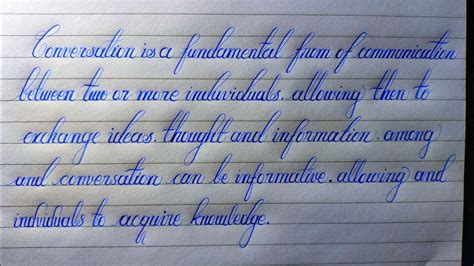 Conversation is a fundamental from of communication
between two or more indiuviduals. allowing then to
exchange ideas. thought and information. among
and conversation can be informative. allowing and
individuals to acquire knowledge.